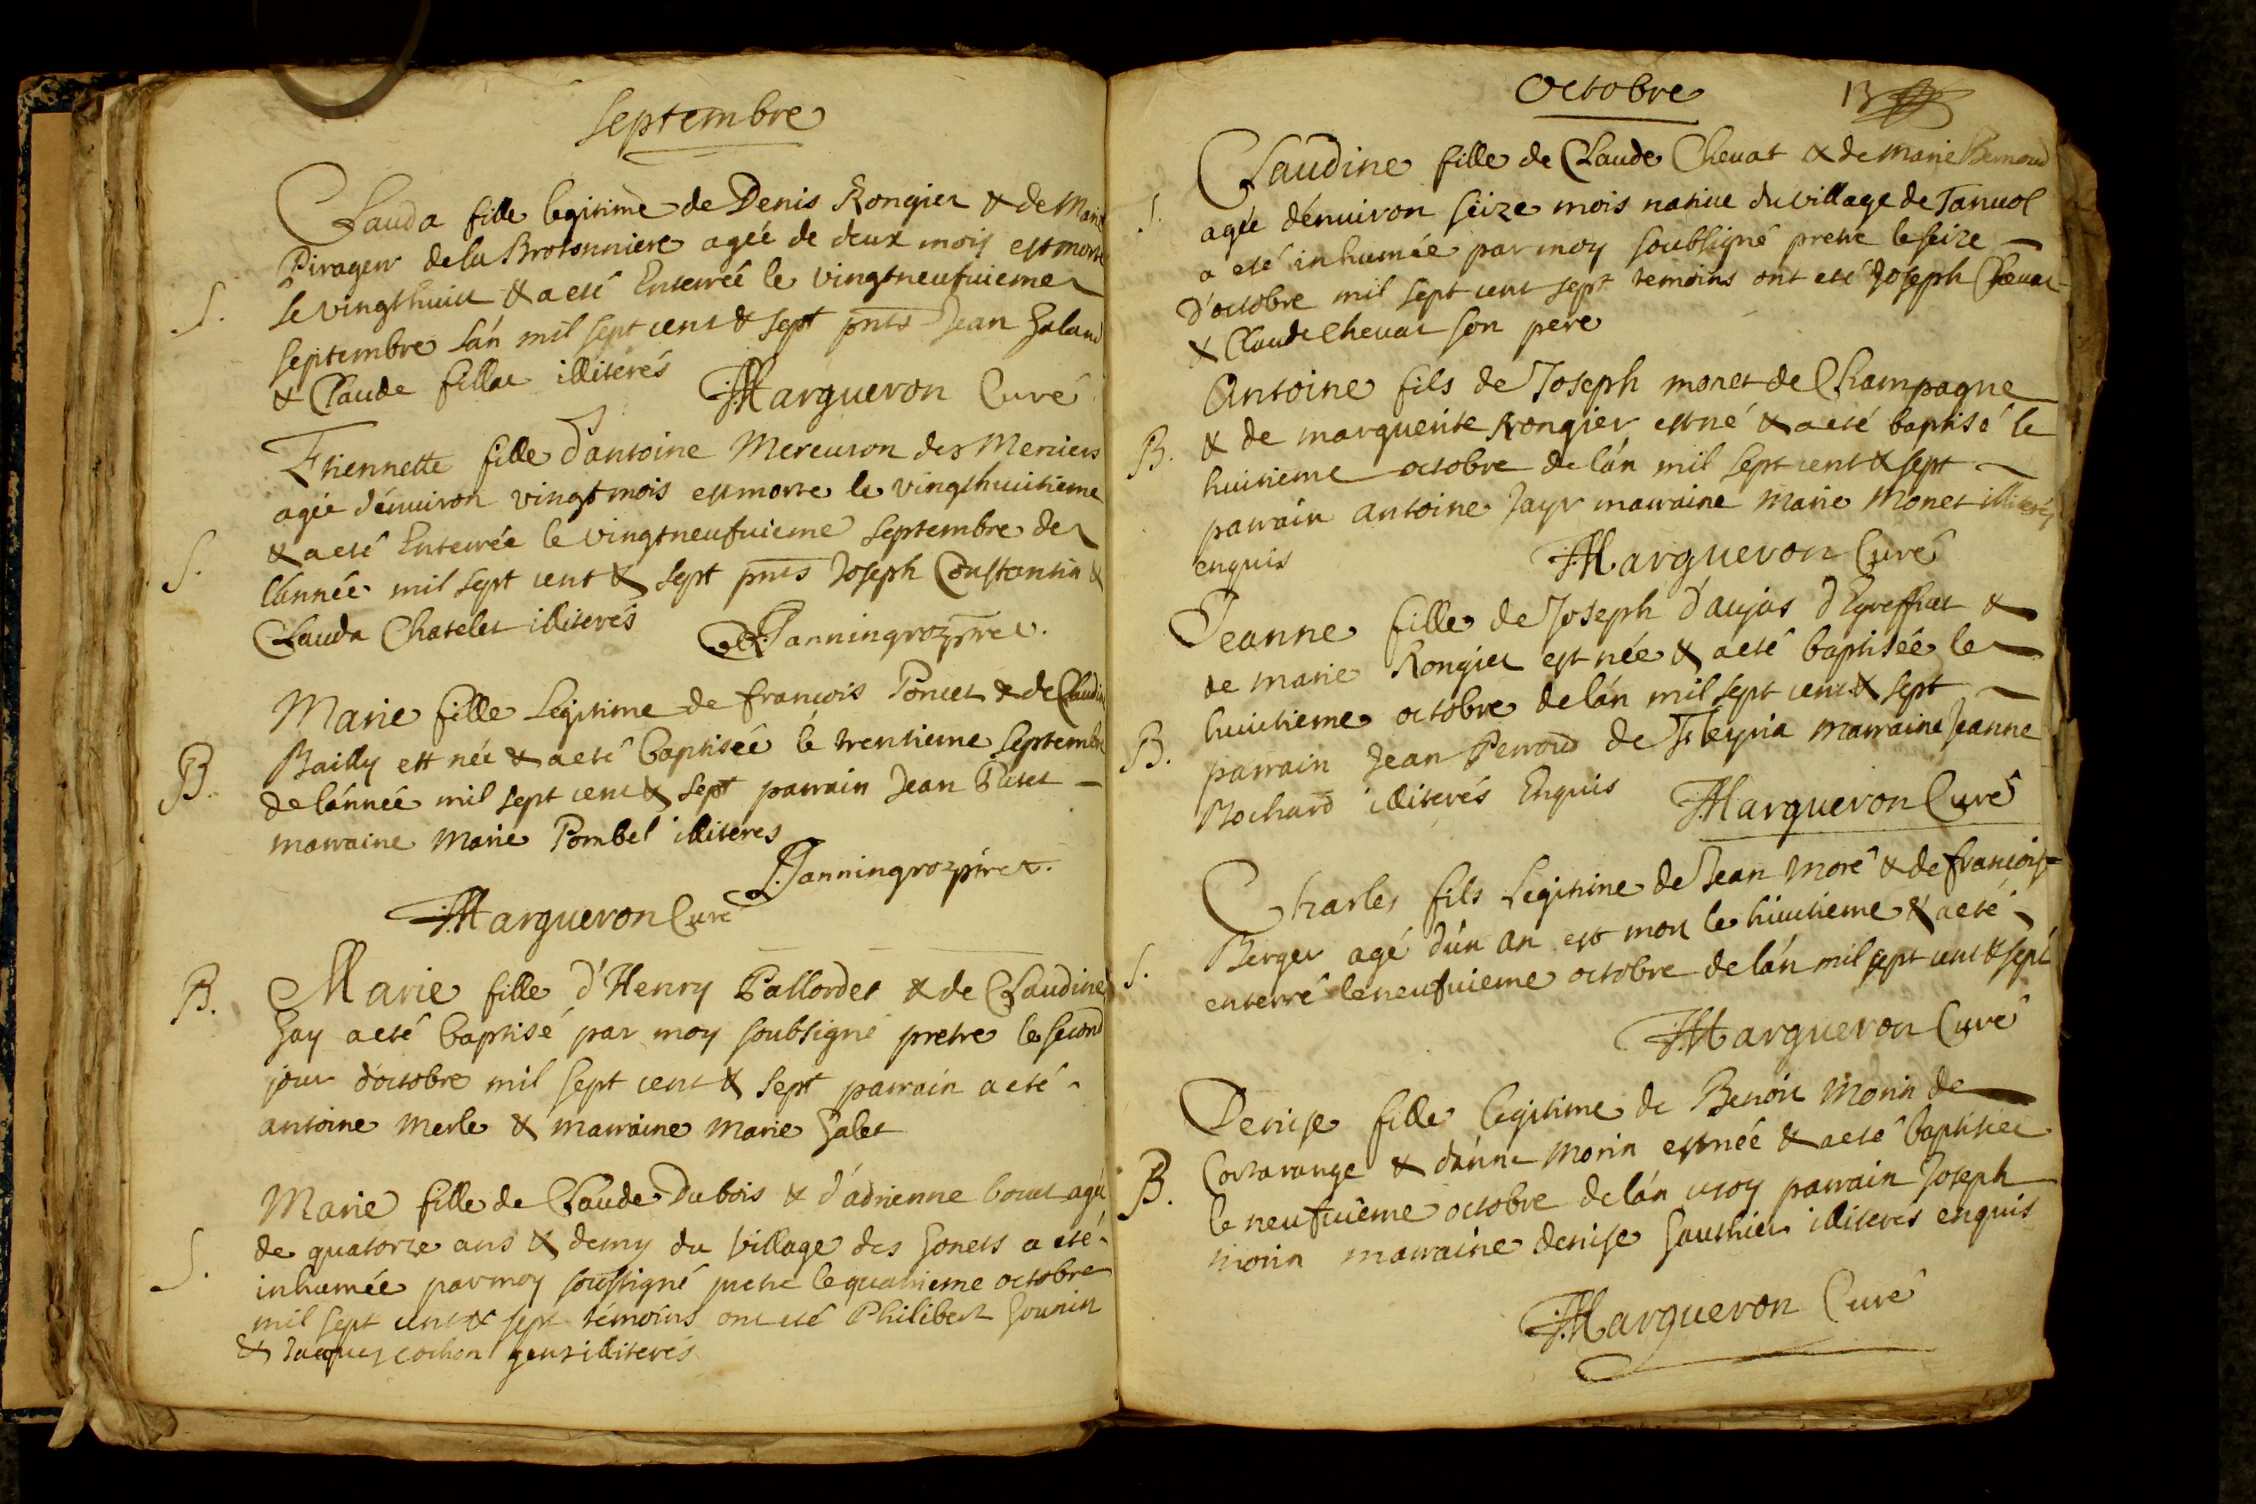 Septembre
Clauda fille legitime de Denis Rongier & de Marie
Pirager de la Brotonniere agéé de deux mois est morte
S. le vingthuit & a eté Enterréé le vingtneufuieme
septembre lán mil sept cent & sept pnts Jean Galand
& Claude fillat illiterés
JMargueron Curé
Etiennette fille dantoine Mercuron des Meniers
agéé dénuiron vingt mois est morte le vingthuitieme
& a eté Enterréé le vingtneufuieme septembre de
S. lánnéé mil sept cent & sept pnts Joseph Constantin &
Clauda Chatelet illiterés
Janningroz pire.
Marie fille legitime de francois Poncet & de Claudine
Bailly est néé & a eté baptiséé le trentieme septembre
B. de lánnéé mil sept cent & sept parrain Jean Patet
marraine Marie Pombel illiteres
Janningroz pire.
JMargueron Curé
B. Marie fille d'Henry Pallordet & de Claudine
Gay a eté baptisé par moy soubsigné pretre le second
jour doctobre mil sept cent & sept parrain a eté
antoine merle & marraine marie Galet
Marie fille de Claude Dubois & d'adrienne bouet agéé
de quatorze ans & demy du village des Gonets a eté
S. inhuméé par moy soussigné pretre le quatrieme octobre
mil sept cent & sept témoins ont eté Philibert Gounin
& Jacques cochon gens illiterés
Octobre 13
Claudine fille de Claude Cheuat & de marie Bernoud
S. agéé dénuiron seize mois natiue du village de Tanuol
a eté inhuméé par moy soubsigné pretre le seize
d'octobre mil sept cent sept temoins ont eté Joseph Cheuat
& Claude Cheuat son pere
Antoine fils de Joseph monet de Champagne
B. & de marguerite Rongier est né & a eté baptisé le
huitieme octobre de lán mil sept cent & sept
parrain antoine Jayr marraine Marie Monet illiterés
enquis
JMargueron Curé
Jeanne fille de Joseph d'aujas d'Eyreffiat &
de marie Rongier est néé & a eté baptiséé le
huitieme octobre de lán mil sept cent & sept
B. parrain Jean Perroud de Fleyria marraine Jeanne
Rochard illiterés Enquis
JMargueron Curé
Charles fils legitime de Jean Moré & de francoise
Berger agé dún an est mort le huitieme & a eté
S. enterré le neufuieme octobre de lán mil sept cent & sept
JMargueron Curé
Denise fille legitime de Benoit Morin de
Cortarange & dánne Morin est néé & a eté baptiséé
B. le neufuieme octobre de lán parrain Joseph
morin marraine denise Gauthier illiterés enquis
JMargueron Curé